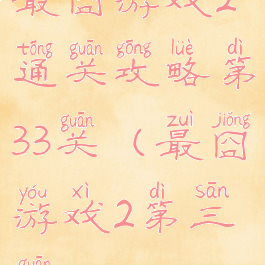 最囧游戏2
tōng guān gōng lüè dì
通关攻略第
guān zuì jiǒng
33关（最囧
yóu xì dì sān
游戏2第三
guān